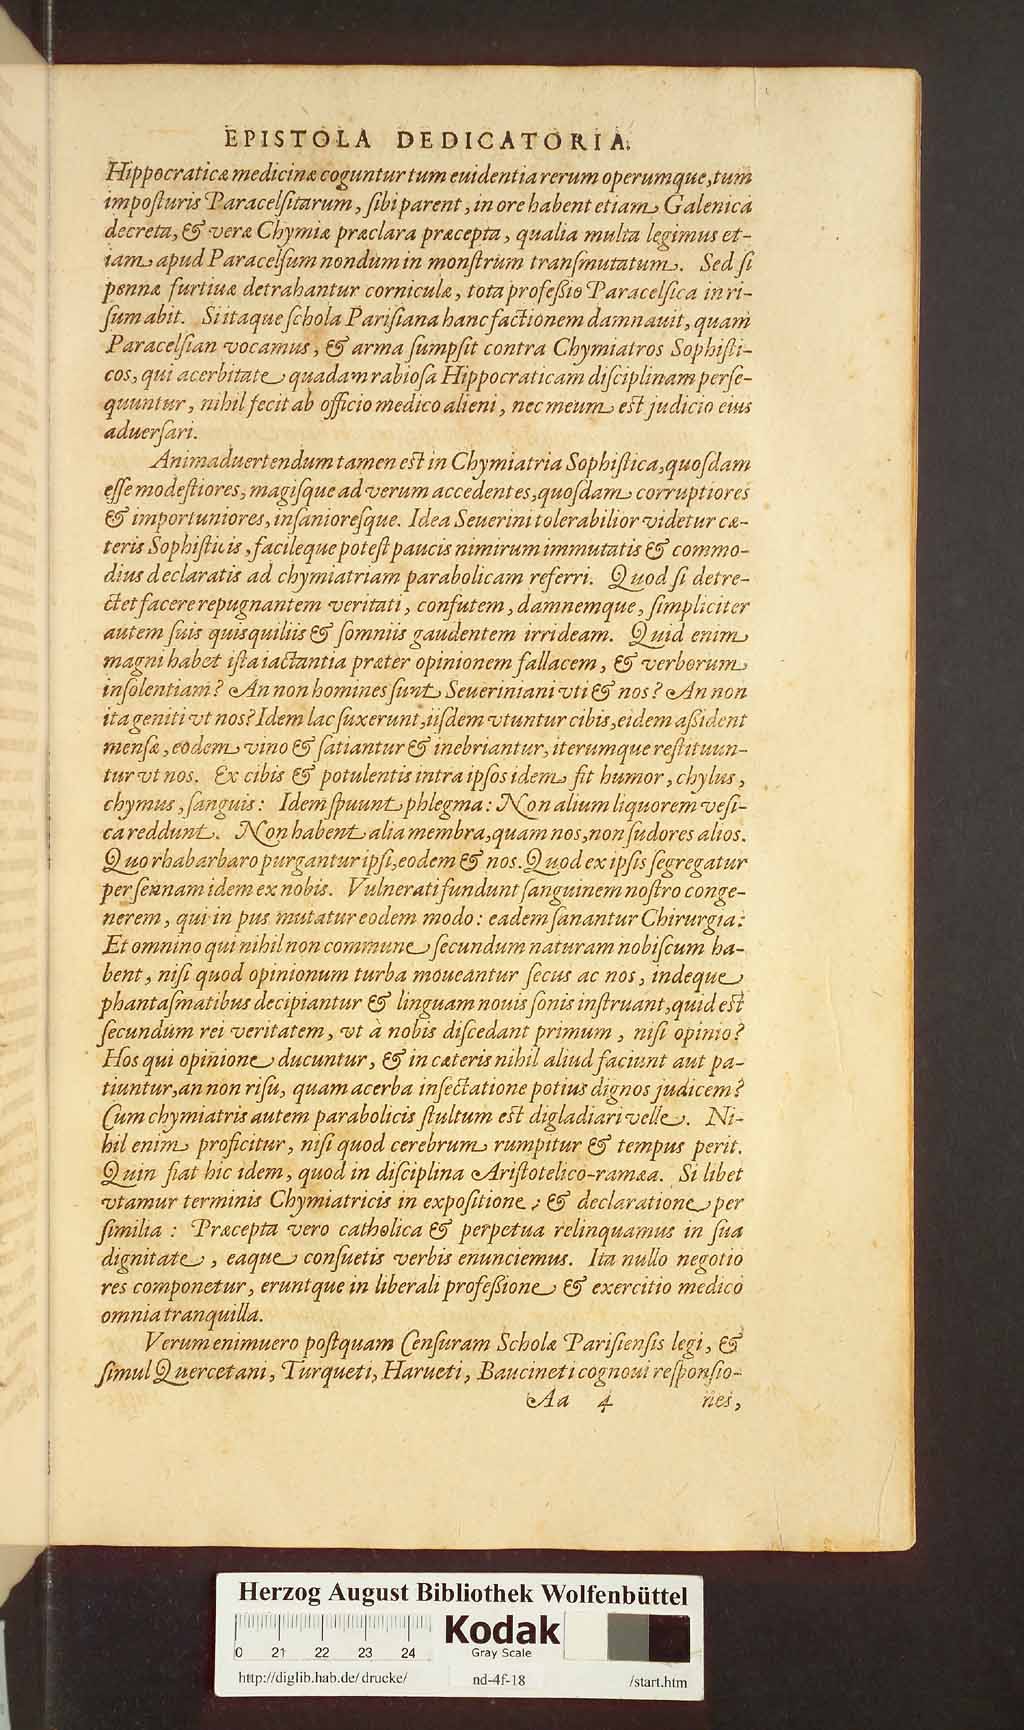 EPISTOLA DEDICATORIA.
Hippocraticæ medicinæ coguntur tum euidentia rerum operumque, tum
impoſturis Paracelſitarum, ſibi parent, in ore habent etiam Galenica
decreta, & veræ Chymiæ præclara præcepta, qualia multa legimus et-
iam apud Paracelſum nondum in monſtrum tranſmutatum. Sed ſi
pennæ furtiuæ detrahantur corniculæ, tota profeßio Paracelſica in ri-
ſum abit. Si itaque ſchola Pariſiana hanc factionem damnauit, quam
Paracelſian vocamus, & arma ſumpſit contra Chymiatros Sophiſti-
cos, qui acerbitate quadam rabioſa Hippocraticam diſciplinam perſe-
quuntur, nihil fecit ab officio medico alieni, nec meum est judicio eius
aduerſari.
Animaduertendum tamen est in Chymiatria Sophiſtica, quoſdam
eſſe modeſtiores, magiſque ad verum accedentes, quoſdam corruptiores
& importuniores, inſanioreſque. Idea Seuerini tolerabilior videtur cæ-
teris Sophiſticis, facileque poteſt paucis nimirum immutatis & commo-
dius declaratis ad chymiatriam parabolicam referri. Quod ſi detre-
ctet facere repugnantem veritati, confutem, damnemque, ſimpliciter
autem ſuis quisquiliis & ſomniis gaudentem irrideam. Quid enim
magni habet iſta iactantia præter opinionem fallacem, & verborum
inſolentiam? An non homines ſunt Seueriniani vti & nos? An non
ita geniti vt nos? Idem lac ſuxerunt, iiſdem vtuntur cibis, eidem aßident
menſæ, eodem vino & ſatiantur & inebriantur, iterumque reſtituun-
tur vt nos. Ex cibis & potulentis intra ipſos idem fit humor, chylus,
chymus, ſanguis: Idem ſpuunt phlegma: Non alium liquorem veſi-
ca reddunt. Non habent alia membra, quam nos, non ſudores alios.
Quo rhabarbaro purgantur ipſi, eodem & nos. Quod ex ipſis ſegregatur
per ſennam idem ex nobis. Vulnerati fundunt ſanguinem noſtro conge-
nerem, qui in pus mutatur eodem modo: eadem ſanantur Chirurgia:
Et omnino qui nihil non commune ſecundum naturam nobiſcum ha-
bent, niſi quod opinionum turba moueantur ſecus ac nos, indeque
phantaſmatibus decipiantur & linguam nouis ſonis inſtruant, quid est
ſecundum rei veritatem, vt à nobis diſcedant primum, niſi opinio?
Hos qui opinione ducuntur, & in cæteris nihil aliud faciunt aut pa-
tiuntur, an non riſu, quam acerba inſectatione potius dignos judicem?
Cum chymiatris autem parabolicis ſtultum est digladiari velle. Ni-
hil enim proficitur, niſi quod cerebrum rumpitur & tempus perit.
Quin fiat hic idem, quod in diſciplina Ariſtotelico-ramæa. Si libet
vtamur terminis Chymiatricis in expoſitione, & declaratione per
ſimilia: Præcepta vero catholica & perpetua relinquamus in ſua
dignitate, eaque conſuetis verbis enunciemus. Ita nullo negotio
res componetur, eruntque in liberali profeßione & exercitio medico
omnia tranquilla.
Verumenimuero poſtquam Cenſuram Scholæ Pariſienſis legi, &
ſimul Quercetani, Turqueti, Harueti, Baucineti cognoui reſponſio-
Aa 4 nes,
Herzog August Bibliothek Wolfenbüttel
Kodak
Gray Scale
0 21 22 23 24
http://diglib.hab.de/drucke/ nd-4f-18 /start.htm